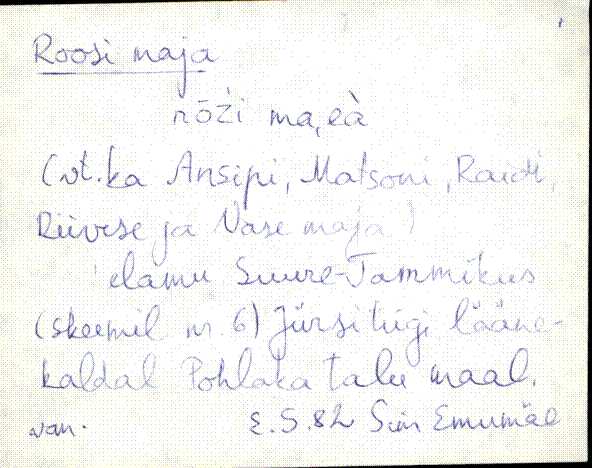 Roosi maja
rōži ma,eà
(vt. ka Ansipi, Matsoni, Raidi,
Riivese ja Vase maja)
elamu Suure-Tammikus
(skeemil nr. 6) Jürsitiigi lääne-
kaldal Pohlaka talu maal.
van. E.S.82 Simuna Emumäe